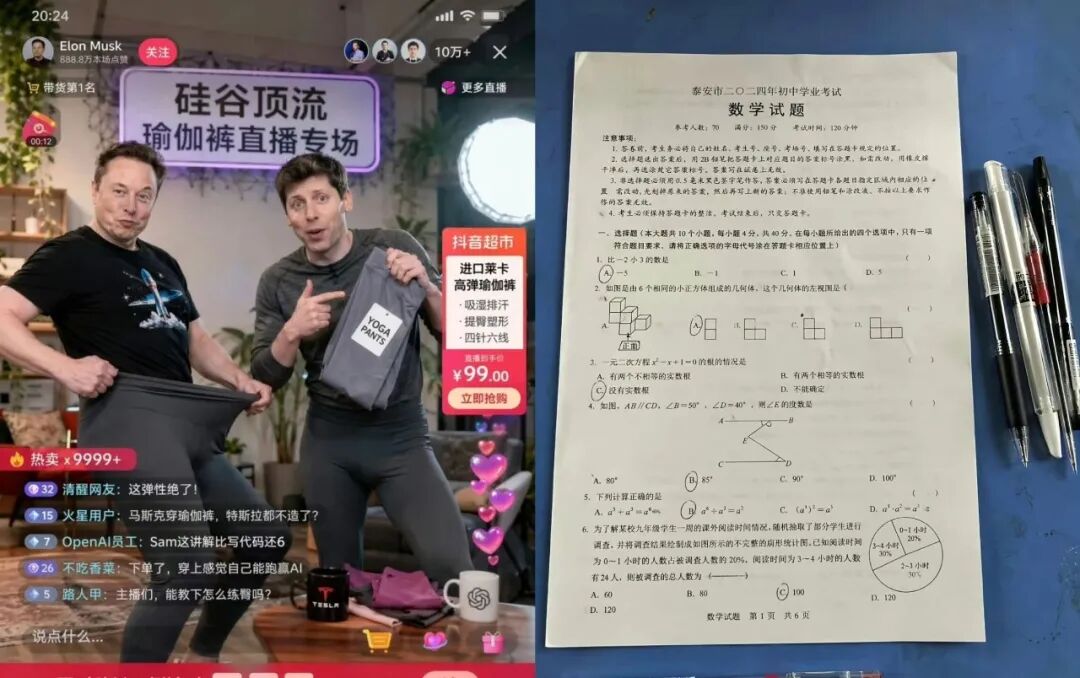 20:24
Elon Musk
888.8万本场点赞
关注
10万+
带货第1名
更多直播
00:12
硅谷顶流
瑜伽裤直播专场
YOGA
PANTS
抖音超市
进口莱卡
高弹瑜伽裤
·吸湿排汗
·提臀塑形
·四针六线
直播到手价
¥99.00
立即抢购
热卖 x9999+
32 清醒网友：这弹性绝了！
15 火星用户：马斯克穿瑜伽裤，特斯拉都不造了？
7 OpenAI员工：Sam这讲解比写代码还6
26 不吃香菜：下单了，穿上感觉自己能跑赢AI
5 路人甲：主播们，能教下怎么练臀吗？
TESLA
说点什么...
泰安市二〇二四年初中学业考试
数学试题
参考人数：70 满分：150分 考试时间：120分钟
注意事项：
1. 答卷前，考生务必将自己的姓名、考生号、座号、考场号、填写在答题卡规定的位置。
2. 选择题选出答案后，用2B铅笔把答题卡上对应题目的答案标号涂黑，如需改动，用橡皮擦
干净后，再选涂规它答案标号。答案写在试卷上无效。
3. 非选择题必须用0.5毫米黑色签字笔作答，答案必须写在答题卡各题目指定区域内相应的位
置
4. 考生必须保持答题卡的整洁。考试结束后，只交答题卡。
一、选择题（本大题共10个小题，每小题4分，共40分。在每小题所给出的四个选项中，只有一项
符合题目要求，请将正确选项的字母代号涂在答题卡相应位置上）
1. 比－2小3的数是 （ ）
A. －5 B. －1 C. 1 D. 5
2. 如图是由6个相同的小正方体组成的几何体，这个几何体的左视图是（
）
A.
正面
A. C. D.
3. 一元二次方程 x²－x＋1＝0 的根的情况是 （ ）
A. 有两个不相等的实数根 B. 有两个相等的实数根
C. 没有实数根 D. 不能确定
4. 如图，AB∥CD，∠B＝50°，∠D＝40°，则∠E的度数是 （ ）
A B
E
C D
A. 80° B. 85° C. 90° D. 100°
5. 下列计算正确的是 （ ）
6. 为了解某校九年级学生一周的课外阅读时间情况，随机抽取了部分学生进行
调查，并将调查结果绘制成如图所示的不完整的扇形统计图。已知阅读时间
为0～1小时的人数占被调查人数的20%，阅读时间为3～4小时的人数
有24人，则被调查的总人数为（ ）
0~1小时
20%
3~4小时
30%
2~3小时
30%
A. 60 B. 80 C. 100 D. 120
D. 120
数学试题 第1页 共6页